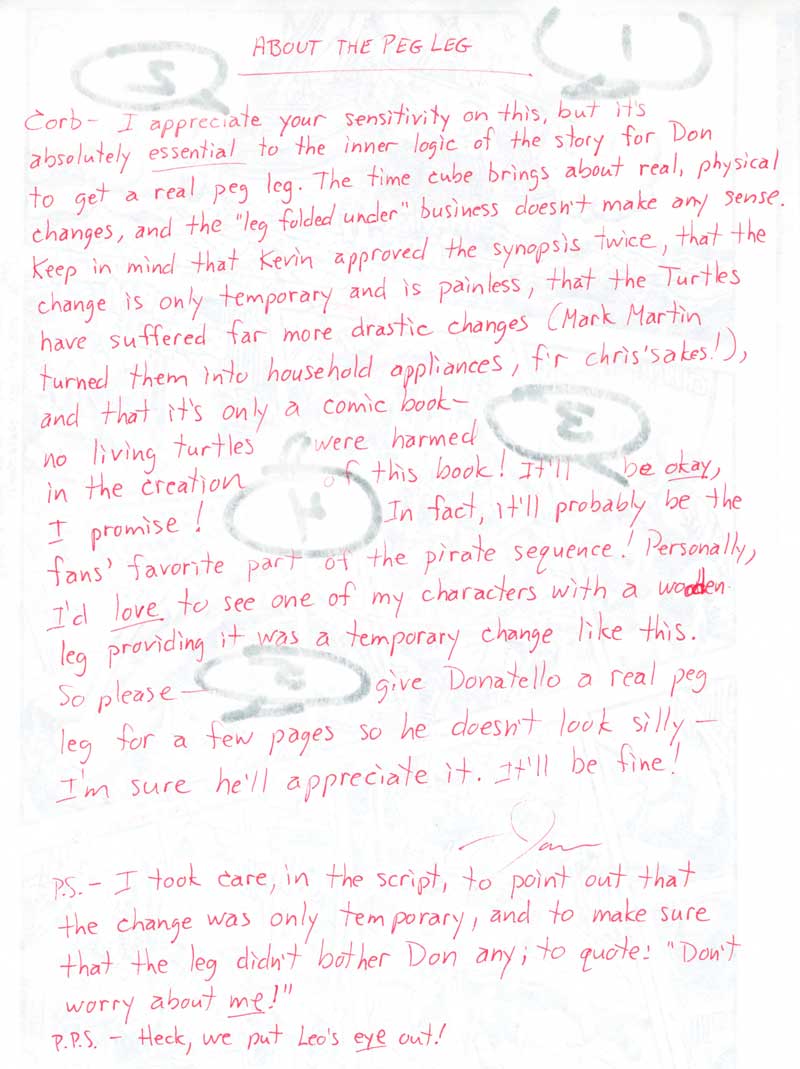 ABOUT THE PEG LEG
Corb- I appreciate your sensitivity on this, but it's
absolutely essential to the inner logic of the story for Don
to get a real peg leg. The time cube brings about real, physical
changes, and the "leg folded under" business doesn't make any sense.
Keep in mind that Kevin approved the synopsis twice, that the
change is only temporary and is painless, that the Turtles
have suffered far more drastic changes (Mark Martin
turned them into household appliances, f'r chris'sakes!),
and that it's only a comic book-
no living turtles were harmed
in the creation of this book! It'll be okay,
I promise! In fact, it'll probably be the
fans' favorite part of the pirate sequence! Personally,
I'd love to see one of my characters with a wooden
leg providing it was a temporary change like this.
So please- give Donatello a real peg
leg for a few pages so he doesn't look silly-
I'm sure he'll appreciate it. It'll be fine!
P.S.- I took care, in the script, to point out that
the change was only temporary, and to make sure
that the leg didn't bother Don any; to quote: "Don't
worry about me!"
P.P.S. - Heck, we put Leo's eye out!
1
2
3